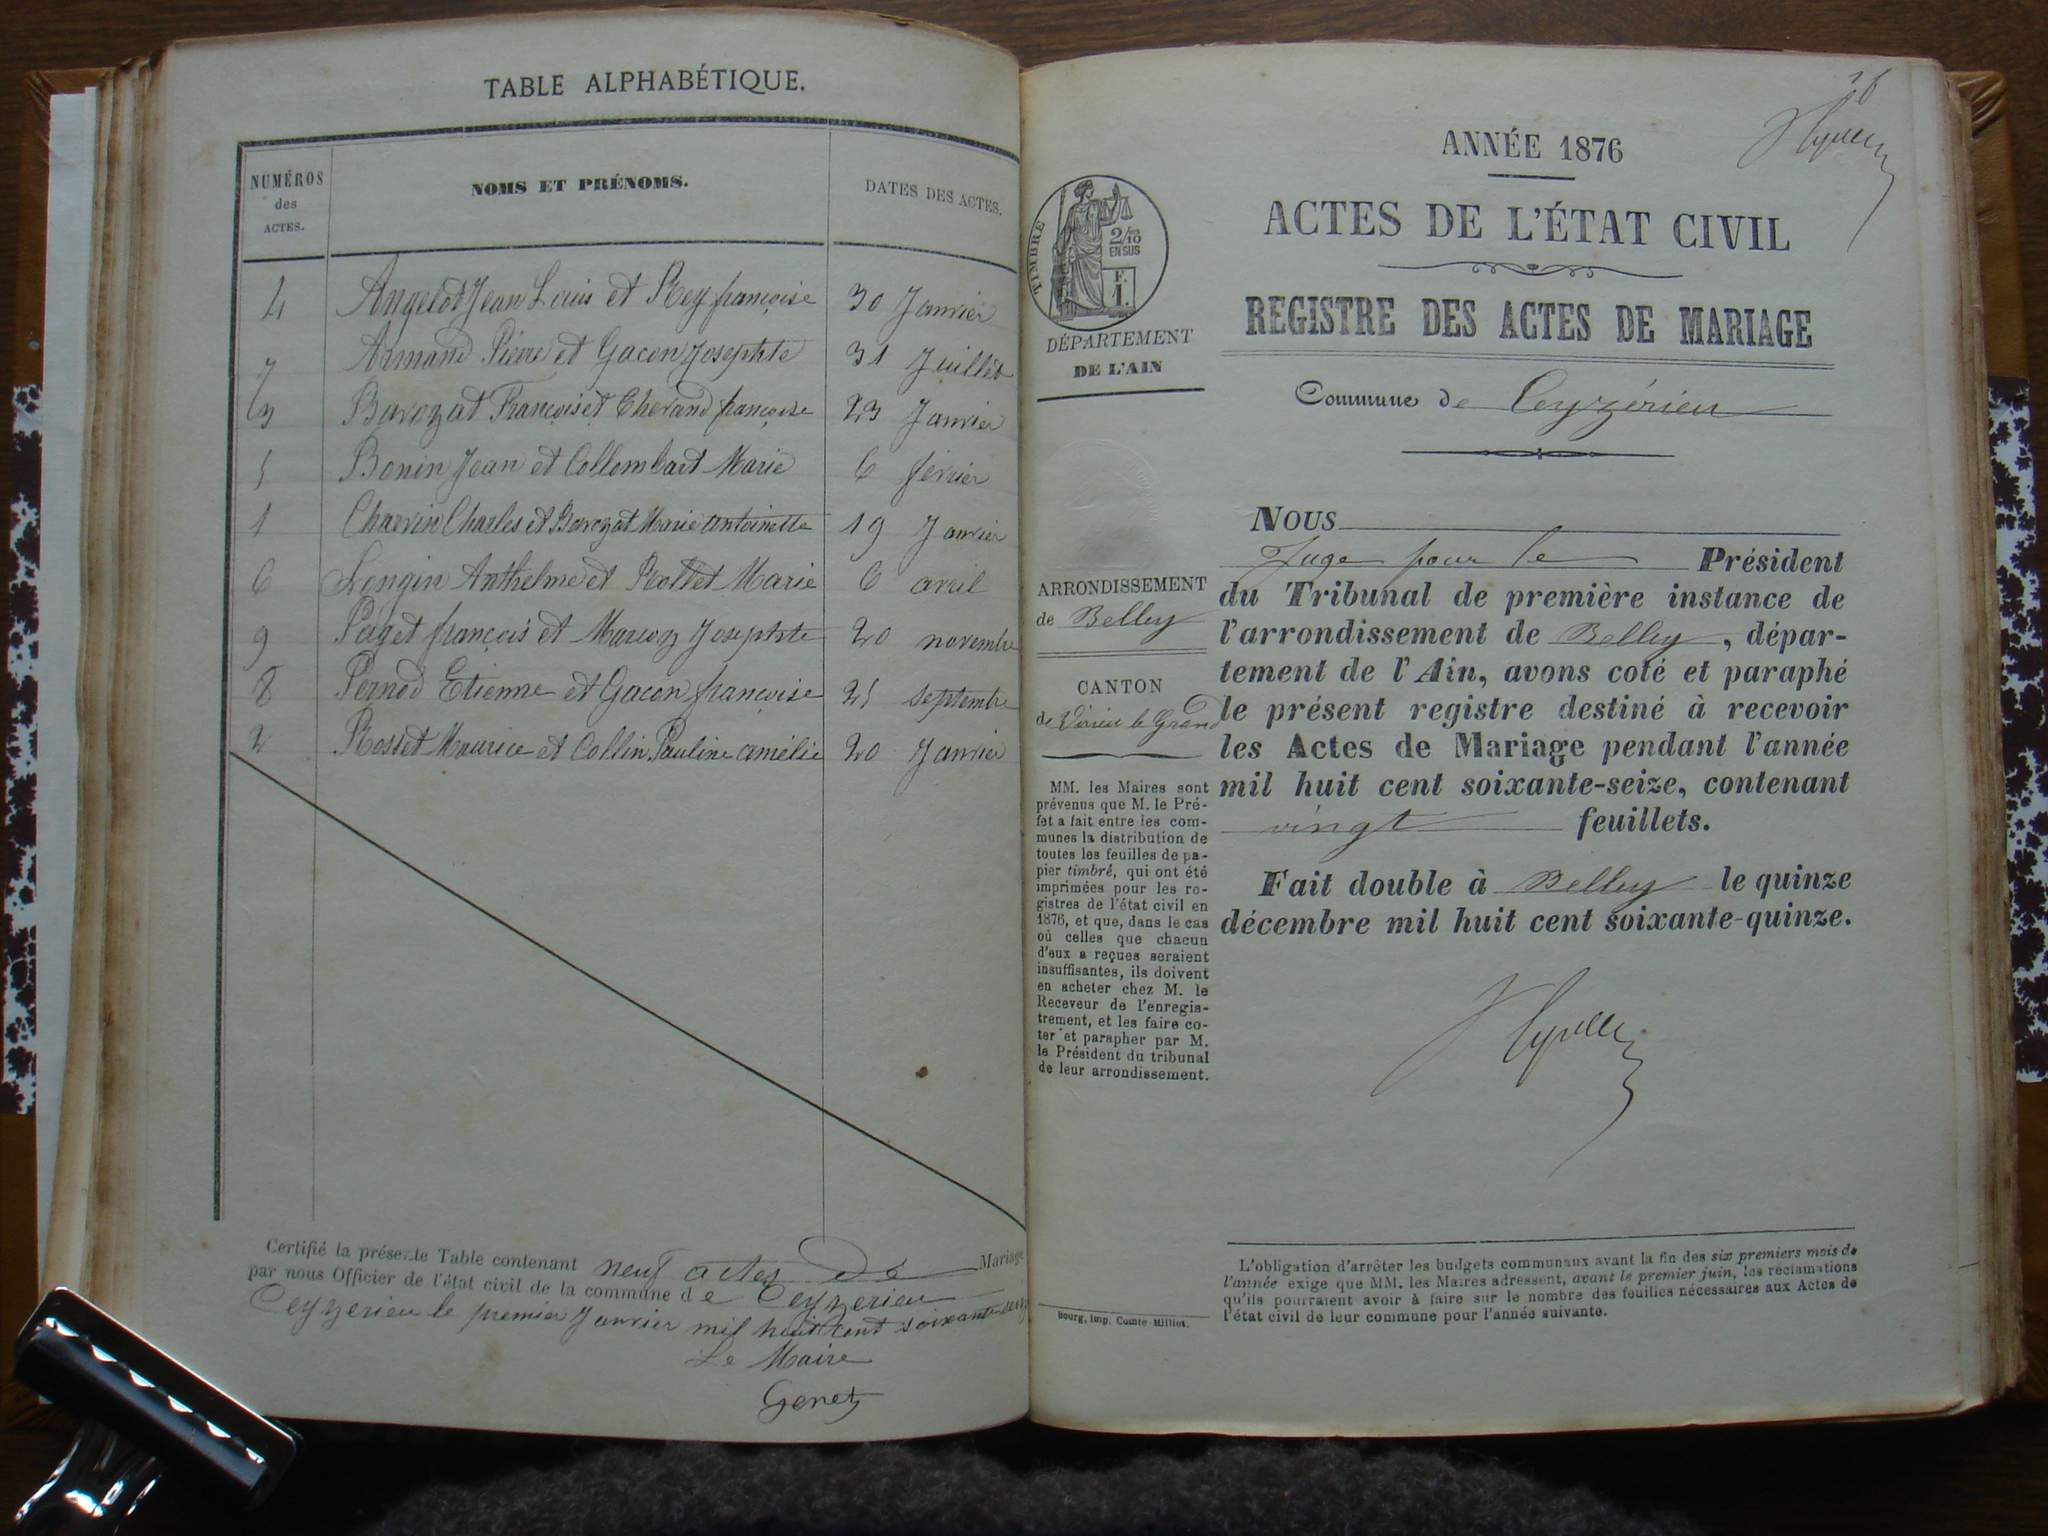 TABLE ALPHABÉTIQUE.
NUMÉROS
des
ACTES.
NOMS ET PRÉNOMS.
DATES DES ACTES.
4 Angelot Jean Louis et Rey françoise 30 Janvier
7 Armand Pierre et Gacon Josephte 31 Juillet
3 Barozat François et Cherand françoise 23 Janvier
5 Bonin Jean et Collombart Marie 6 février
1 Charvin Charles et Barozat Marie antoinette 19 Janvier
6 Longin Anthelme et Rollet Marie 6 avril
9 Paget françois et Marcoz Josephte 20 novembre
8 Pernod Etienne et Gacon françoise 25 septembre
2 Rosset Maurice et Collin Pauline amélie 20 Janvier
Certifié la présente Table contenant neuf actes de Mariage
par nous Officier de l'état civil de la commune de Ceyzerieu
Ceyzerieu le premier Janvier mil huit cent soixante seize
Le Maire
Genet
26
ANNÉE 1876
ACTES DE L'ÉTAT CIVIL
REGISTRE DES ACTES DE MARIAGE
Commune de Ceyzérieu
TIMBRE
2/10
EN SUS
F.
1.
DÉPARTEMENT
DE L'AIN
ARRONDISSEMENT
de Belley
CANTON
de Virieu le Grand
MM. les Maires sont
prévenus que M. le Pré-
fet a fait entre les com-
munes la distribution de
toutes les feuilles de pa-
pier timbré, qui ont été
imprimées pour les re-
gistres de l'état civil en
1876, et que, dans le cas
où celles que chacun
d'eux a reçues seraient
insuffisantes, ils doivent
en acheter chez M. le
Receveur de l'enregis-
trement, et les faire co-
ter et parapher par M.
le Président du tribunal
de leur arrondissement.
Bourg, imp. Comte-Milliet.
NOUS
Juge pour le Président
du Tribunal de première instance de
l'arrondissement de Belley, dépar-
tement de l'Ain, avons coté et paraphé
le présent registre destiné à recevoir
les Actes de Mariage pendant l'année
mil huit cent soixante-seize, contenant
vingt feuillets.
Fait double à Belley le quinze
décembre mil huit cent soixante-quinze.
L'obligation d'arrêter les budgets communaux avant la fin des six premiers mois de
l'année exige que MM. les Maires adressent, avant le premier juin, les réclamations
qu'ils pourraient avoir à faire sur le nombre des feuilles nécessaires aux Actes de
l'état civil de leur commune pour l'année suivante.